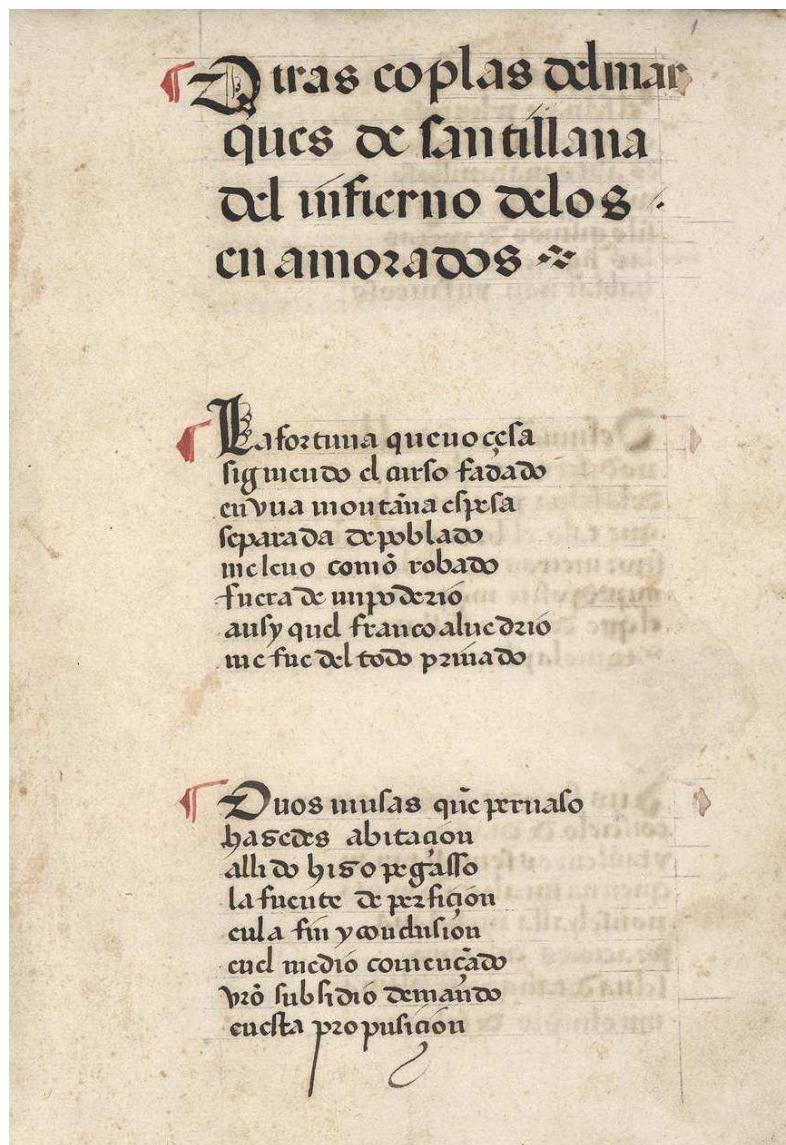 Otras coplas del mar
ques de santillana
del infierno delos
enamorados
La fortuna que no çesa
siguiendo el curso fadado
en vna montaña espesa
separada de poblado
me leuo como robado
fuera de mi poderio
ansy quel franco aluedrio
me fue del todo priuado
O vos musas quen pernaso
hazedes abitaçion
alli do hizo pegasso
la fuente de perfiçion
en la fin y conclusion
en el medio començado
vro subsidio demando
en esta propusiçion